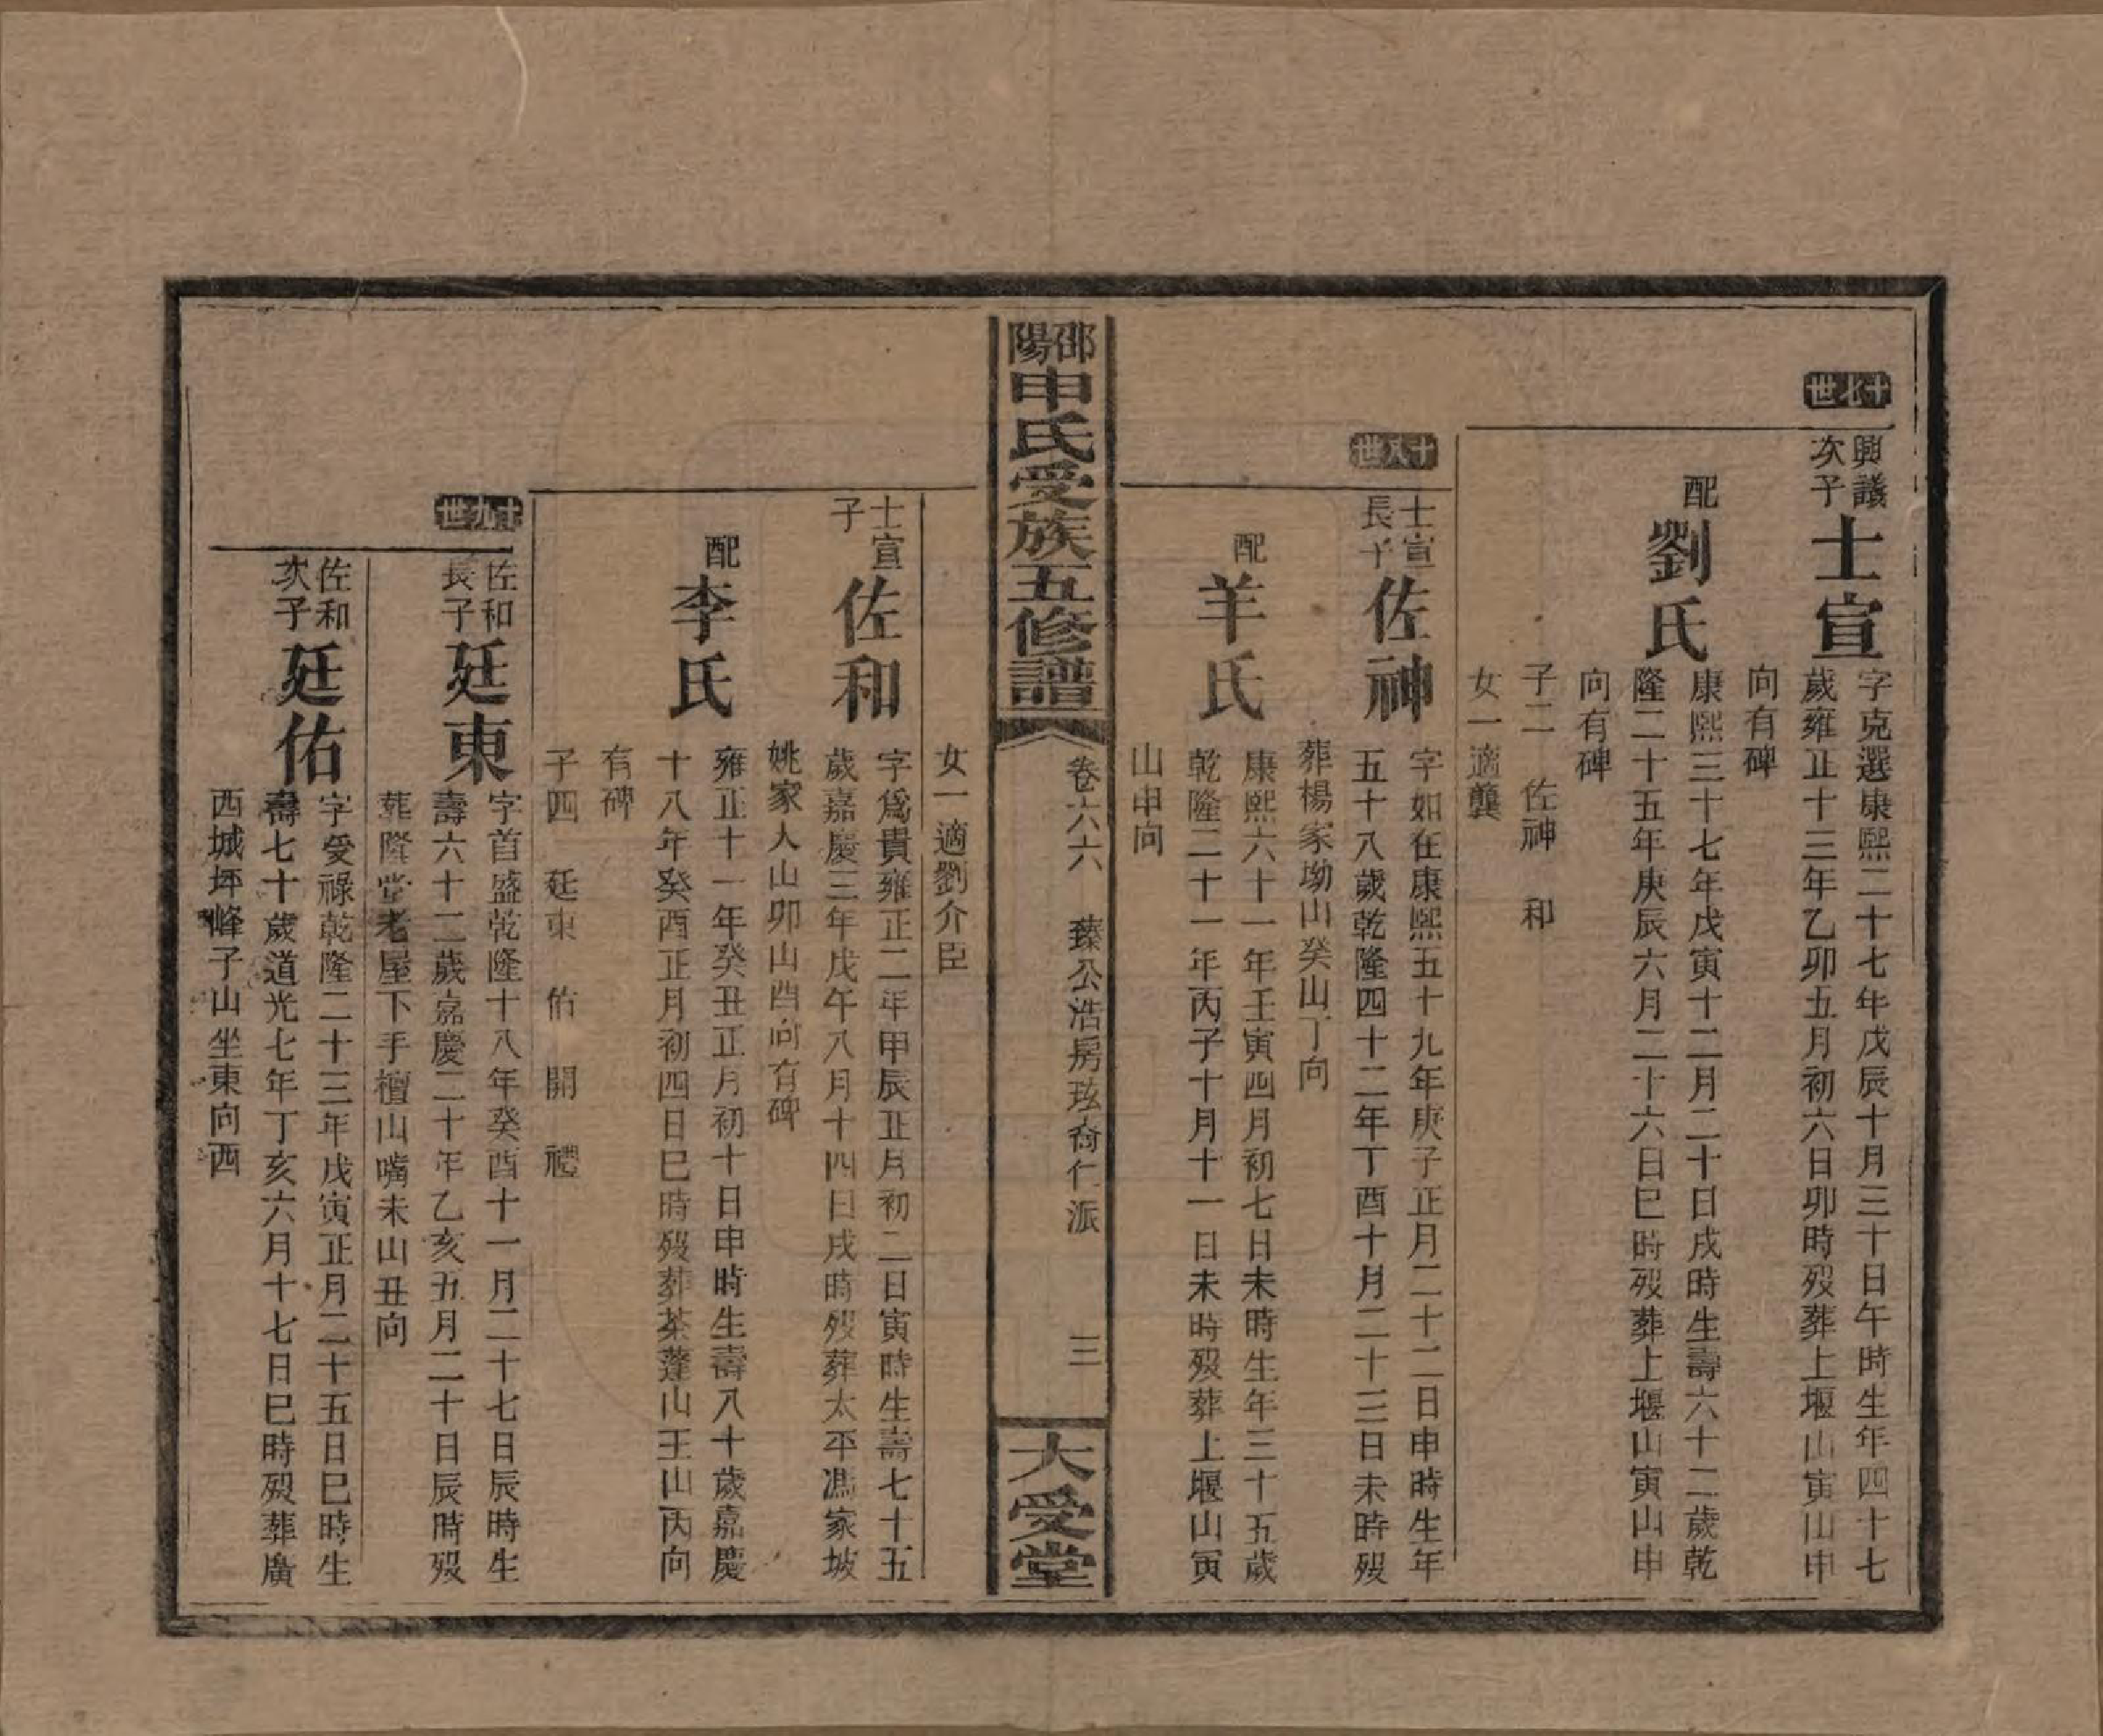 十七世
興議次子
士宣
字克選康熙二十七年戊辰十月三十日午時生年四十七
歲雍正十三年乙卯五月初六日卯時歿葬上堰山寅山申
向有碑
配
劉氏
康熙三十七年戊寅十二月二十日戌時生壽六十二歲乾
隆二十五年庚辰六月二十六日巳時歿葬上堰山寅山申
向有碑
子二 佐神 和
女一適龔
十八世
士宣長子
佐神
字如在康熙五十九年庚子正月二十二日申時生年
五十八歲乾隆四十二年丁酉十月二十三日未時歿
葬楊家坳山癸山丁向
配
羊氏
康熙六十一年壬寅四月初七日未時生年三十五歲
乾隆二十一年丙子十月十一日未時歿葬上堰山寅
山申向
邵陽申氏受族五修譜
卷六六 臻公浩房玹裔仁派
三
大受堂
女一適劉介臣
士宣子
佐和
字爲貴雍正二年甲辰正月初二日寅時生壽七十五
歲嘉慶三年戊午八月十四日戌時歿葬太平馮家坡
姚家人山卯山酉向有碑
配
李氏
雍正十一年癸丑正月初十日申時生壽八十歲嘉慶
十八年癸酉正月初四日巳時歿葬茶蓬山壬山丙向
有碑
子四 廷東 佑 開 禮
十九世
佐和長子
廷東
字首盛乾隆十八年癸酉十一月二十七日辰時生
壽六十二歲嘉慶二十年乙亥五月二十日辰時歿
葬隆堂老屋下手檀山嘴未山丑向
佐和次子
廷佑
字受祿乾隆二十三年戊寅正月二十五日巳時生
壽七十歲道光七年丁亥六月十七日巳時歿葬廣
西城坪峰子山坐東向西